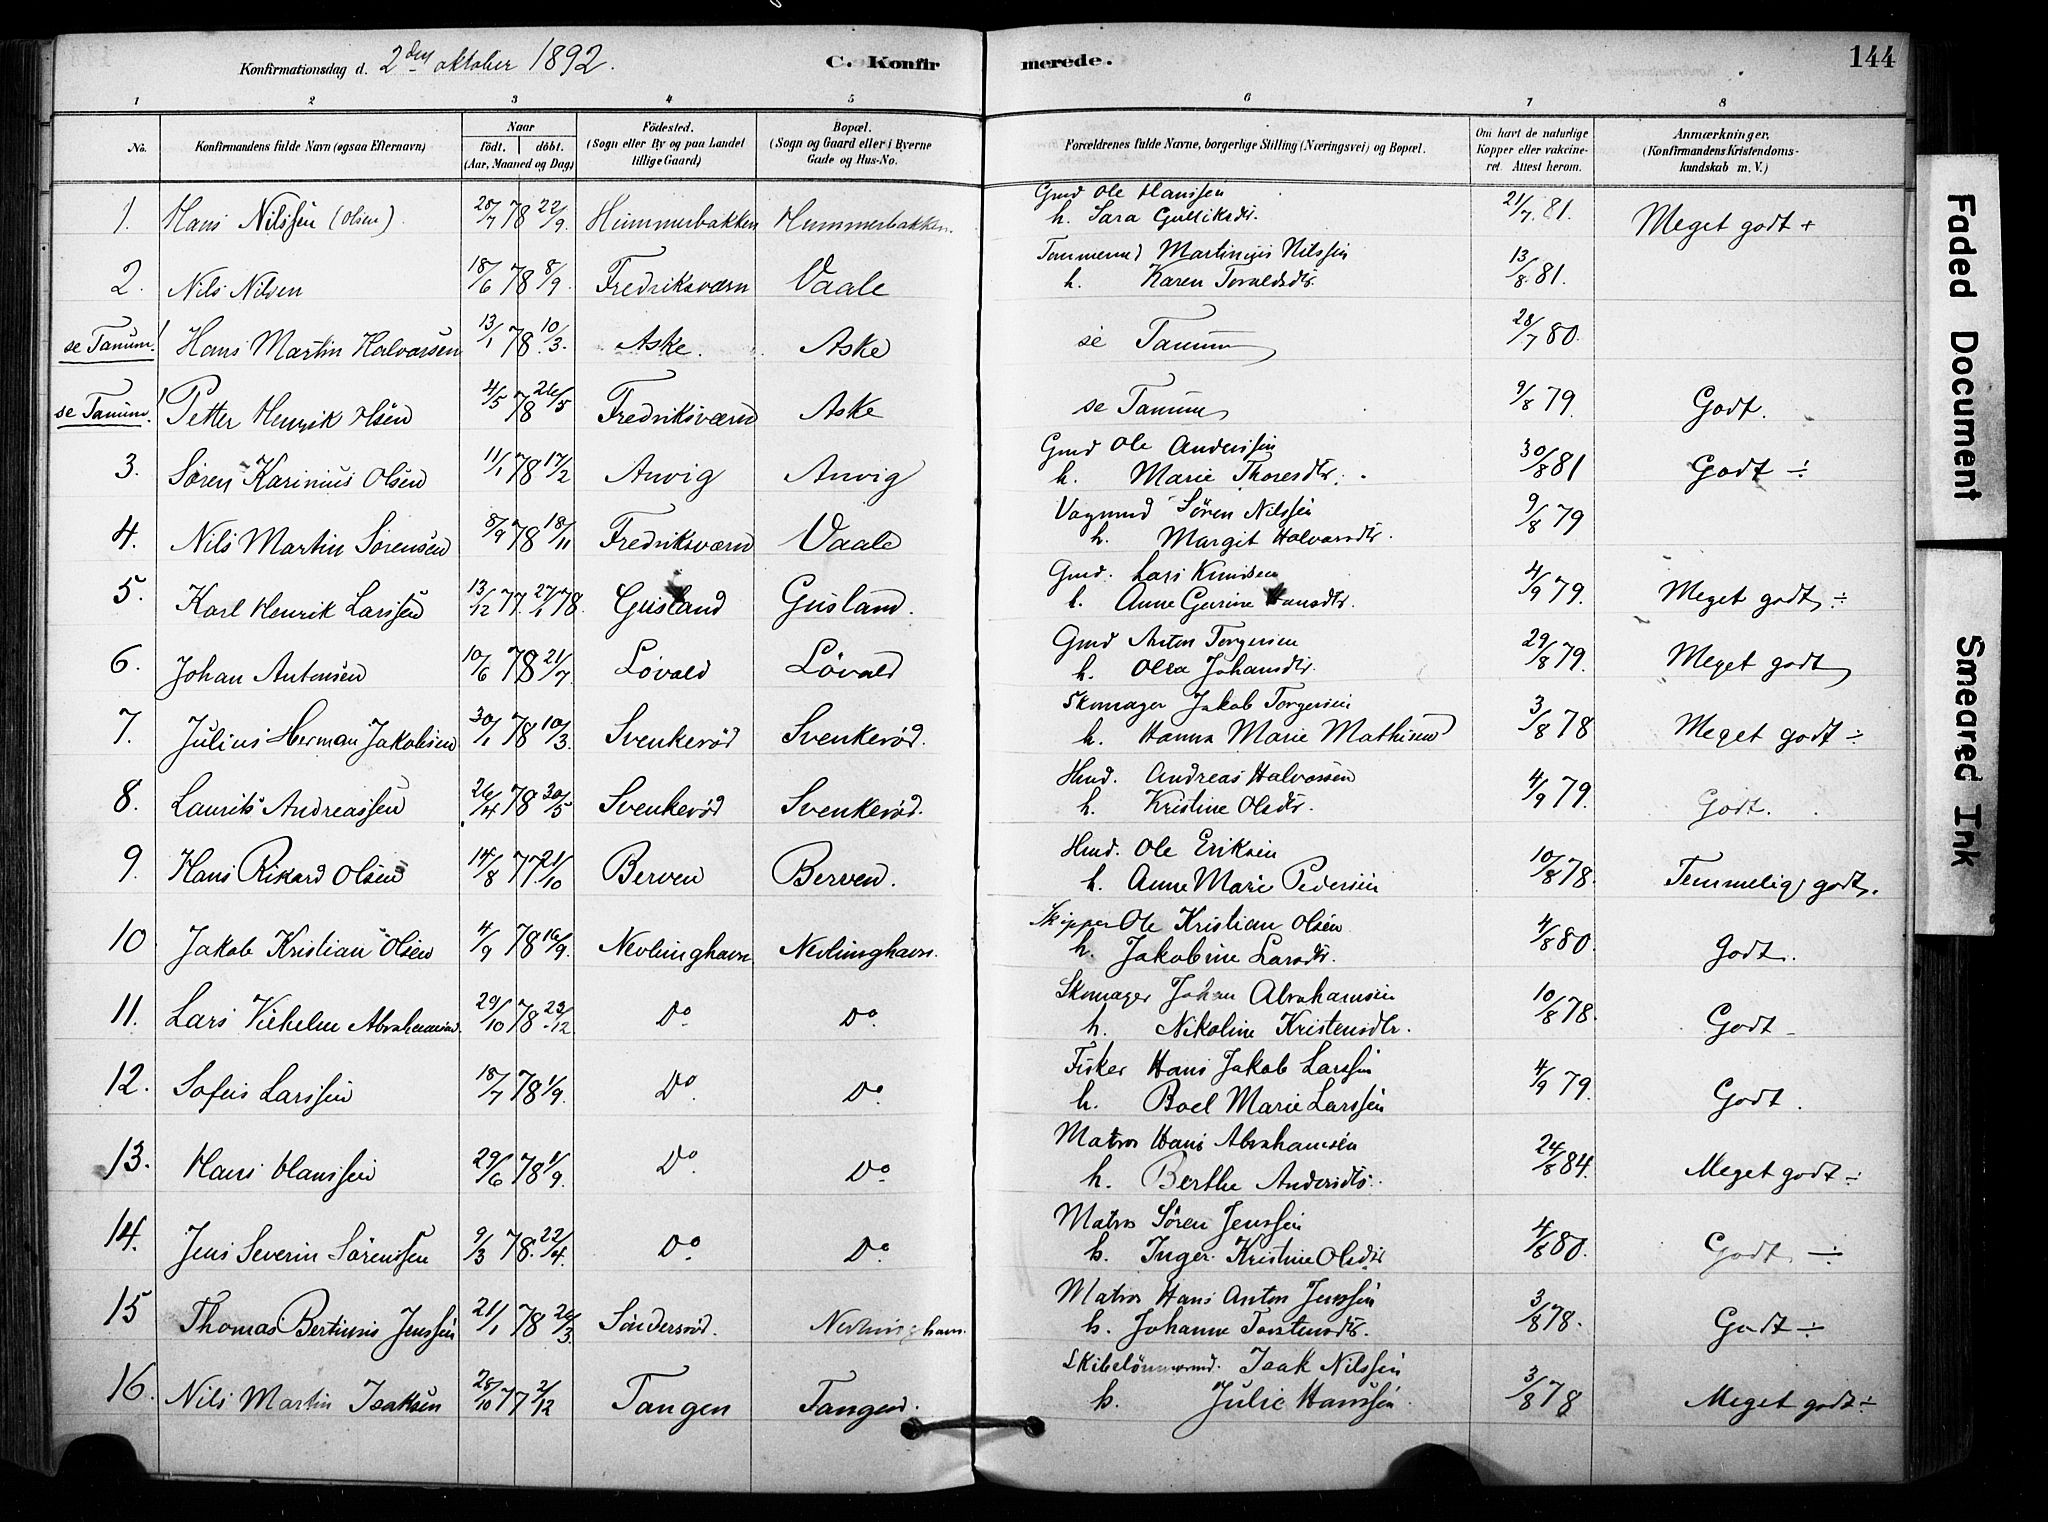 Konfirmationsdag d. 2den oktober 1892. C. Konfirmerede. 144
1 2 3 4 5 6 7 8
No. Konfirmandens fulde Navn (ogsaa Efternavn) Naar födt. döbt. (Aar, Maaned og Dag) Födested. (Sogn eller By og paa Landet tillige Gaard) Bopæl. (Sogn og Gaard eller i Byerne Gade og Hus-No. Forældrenes fulde Navne, borgerlige Stilling (Næringsvei) og Bopæl. Om havt de naturlige Kopper eller vakcineret. Attest herom. Anmærkninger, (Konfirmandens Kristendomskundskab m. V.)
1. Hans Nilssen (Olsen) 28/7 78 22/9 Hummerbakken Hummerbakken. Gmd Ole Hanssen 21/7 81. Meget godt +
h. Sara Gulliksdtr.
2. Nils Nilsen 18/6 78 8/9. Fredriksværn Vaale Tømmermd Martinius Nilssen 13/8 81.
h. Karen Toraldsdtr.
se Tanum! Hans Martin Halvorsen 13/1 78 10/3. Aske. Aske se Tanum 28/7 80.
se Tanum! Petter Henrik Olsen 4/5 78 26/5 Fredriksværn Aske se Tanum 9/8 79. Godt.
3. Søren Karinius Olsen 11/1 78 17/2 Anvig Anvig Gmd Ole Anderssen 30/8 81 Godt ÷
h. Marie Thoresdtr.
4. Nils Martin Sørensen 8/9 78 18/11 Fredriksværn Vaale Vognmd Søren Nilssen 9/8 79
h. Margit Halvorsdtr.
5. Karl Henrik Larssen 13/12 77. 27/1 78. Gusland Gusland. Gmd. Lars Knudsen 4/9 79. Meget godt ÷
h. Anne Gurine Hansdtr.
6. Johan Antonsen 10/6 78 21/7. Løvald Løvald Gmd Anton Torgersen 29/8 79. Meget godt
h. Olea Johansdtr.
7. Julius Herman Jakobsen 30/1 78 10/3. Svenkerød Svenkerød. Skomager Jakob Torgersen 3/8 78 Meget godt ÷
h. Hanna Marie Mathisen
8. Laurits Andreassen 26/4 78 30/5 Svenkerød Svenkerød. Hmd. Andreas Halvorsen 4/9 79. Godt.
h. Kristine Olsdtr.
9. Hans Rikard Olsen 14/8 77 21/10 Berven Berven. Hmd. Ole Eriksen 10/8 78. Temmelig godt.
h. Anne Marie Pedersen
10 Jakob Kristian Olsen 4/9 78 16/9. Nevlinghavn Nevlinghavn. Skipper Ole Kristian Olsen 4/8 80. Godt.
h. Jakobine Larsdtr.
11. Lars Vilhelm Abrahamsen. 29/10 78. 23/12. Do Do. Skomager Johan Abrahamsen 10/8 78. Godt
h. Nikoline Kristensdtr.
12. Sofus Larssen 18/7 78 1/9. Do. Do. Fisker Hans Jakob Larssen 4/9 79. Godt.
h. Boel Marie Larssen
13. Hans Hanssen 29/6 78 1/9. Do Do. Matros Hans Abrahamsen 24/8 84. Meget godt ÷
h. Berthe Andersdtr.
14. Jens Severin Sørenssen 9/3 78. 22/4. Do Do Matros Søren Jenssen 4/8 80. Godt ÷
h. Inger Kristine Olsdtr
15 Thomas Bertinius Jenssen 21/1 78 26/3 Söndersröd. Nevlinghavn. Matros Hans Anton Jenssen 3/8 78. Godt ÷
h. Johanne Torstensdtr.
16. Nils Martin Isaksen 28/10 77 2/12 Tangen Tangen. Skibstömmermd. Isak Nilssen 3/8 78 Meget godt ÷
h. Julie Hanssen.
Faded Document
Smeared Ink